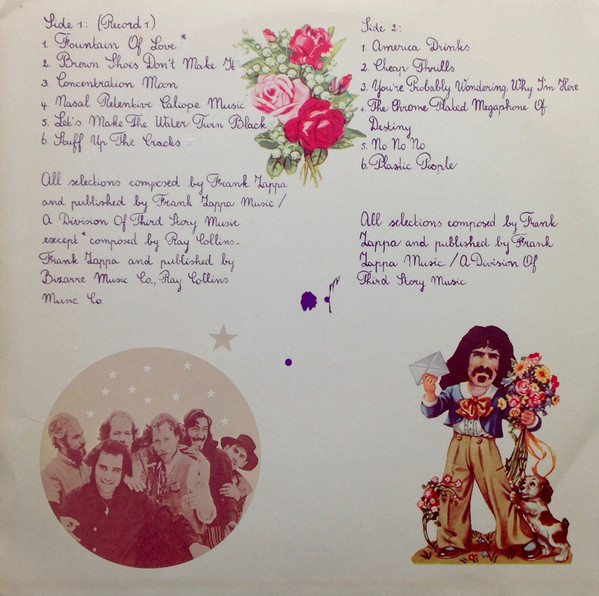 Side 1: (Record 1)
1. Fountain Of Love *
2. Brown Shoes Don't Make It
3. Concentration Moon
4. Nasal Retentive Caliope Music
5. Let's Make The Water Turn Black
6. Stuff Up The Cracks
All selections composed by Frank Zappa
and published by Frank Zappa Music /
A Division Of Third Story Music
except * composed by Ray Collins-
Frank Zappa and published by
Bizarre Music Co., Ray Collins
Music Co.
Side 2:
1. America Drinks
2. Cheap Thrills
3. You're Probably Wondering Why I'm Here
4. The Chrome Plated Megaphone Of
Destiny
5. No No No
6. Plastic People
All selections composed by Frank
Zappa and published by Frank
Zappa Music / A Division Of
Third Story Music